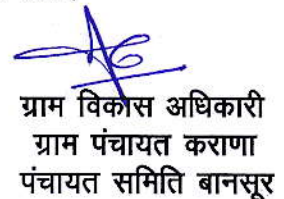 ग्राम विकास अधिकारी
ग्राम पंचायत कराणा
पंचायत समिति बानसूर